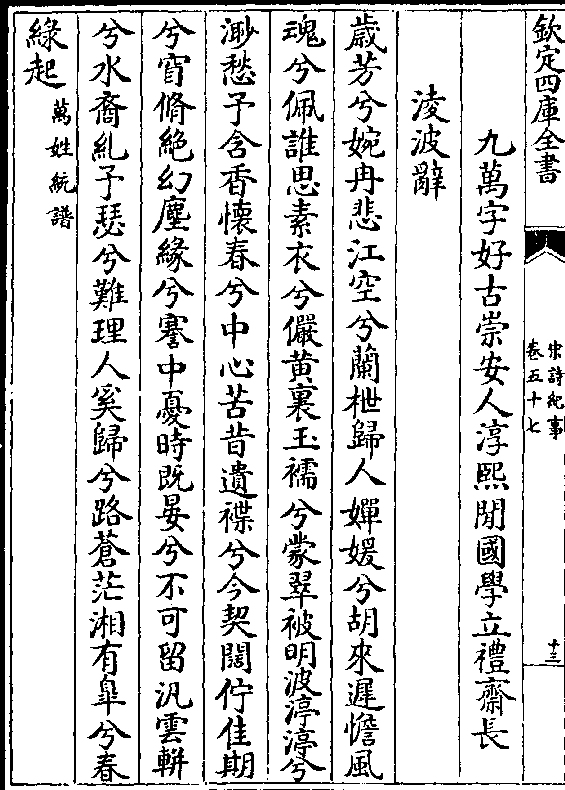 欽定四庫全書
宋詩紀事
卷五十七
十三
九萬字好古崇安人淳熙間國學立禮齋長
淩波辭
歲芳兮婉冉悲江空兮蘭枻歸人嬋媛兮胡來遲憺風
魂兮佩誰思素衣兮儼黃裏玉襦兮蒙翠被明波渟渟兮
渺愁予含香懷春兮中心苦昔遺褋兮今契闊佇佳期
兮窅脩絶幻塵緣兮蹇中憂時既晏兮不可留汎雲軿
兮水裔乿予瑟兮難理人奚歸兮路蒼茫湘有臯兮春
綠起
萬姓統譜